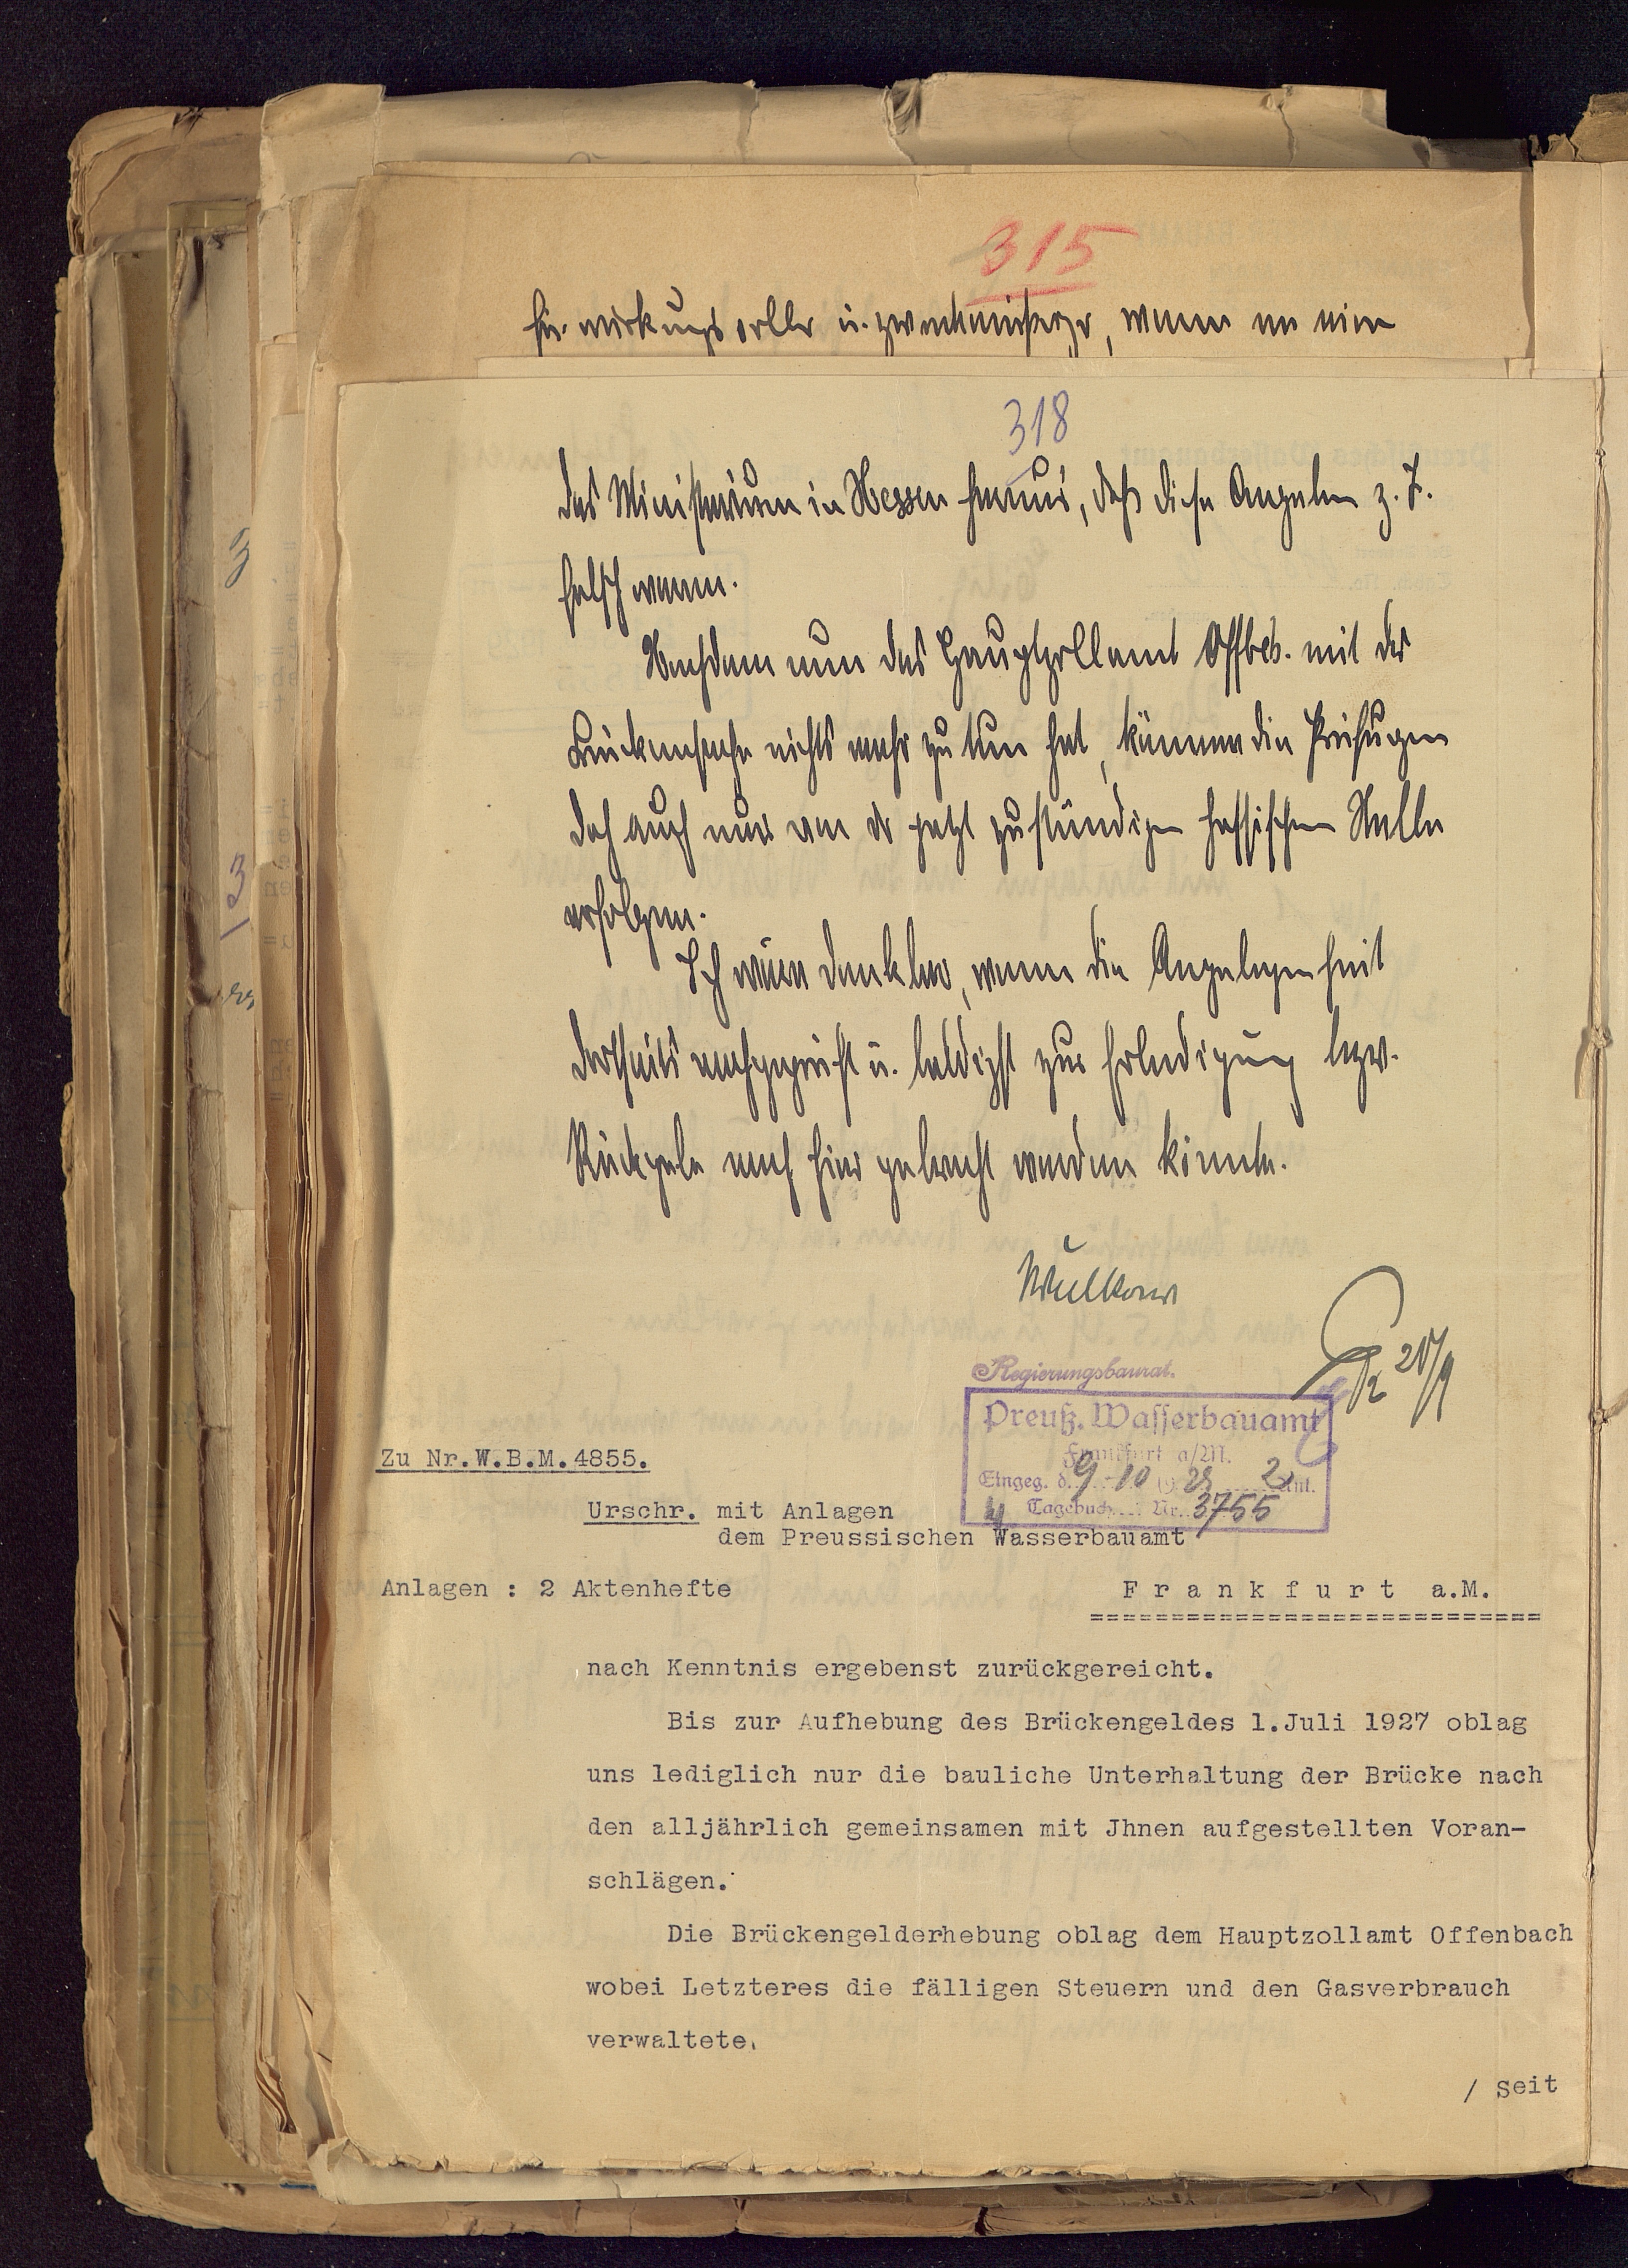 315
für wirkungsvoller u. zweckmäßiger, wenn
318
das Ministerium in Hessen heraus, daß diese Angaben z. T.
falsch waren.
Nachdem nun das Hauptzollamt Offbch. mit der
Brückensache nichts mehr zu tun hat, können die Prüfungen
doch auch nur von der jetzt zuständigen hessischen Stelle
erfolgen.
Ich wäre dankbar, wenn die Angelegenheit
dortseits nachgeprüft u. baldigst zur Erledigung bzw.
Rückgabe nach hier gebracht werden könnte.
Wulkow
Regierungsbaurat.
Preuß. Wasserbauamt
Frankfurt a/M.
Eingeg. d. 9. 10 19 28 2 Anl.
Tagebuch Nr. 3755
Zu Nr.W.B.M.4855.
Urschr. mit Anlagen
dem Preussischen Wasserbauamt
Anlagen : 2 Aktenhefte
F r a n k f u r t a.M.
============================
nach Kenntnis ergebenst zurückgereicht.
Bis zur Aufhebung des Brückengeldes 1.Juli 1927 oblag
uns lediglich nur die bauliche Unterhaltung der Brücke nach
den alljährlich gemeinsamen mit Jhnen aufgestellten Voran-
schlägen.
Die Brückengelderhebung oblag dem Hauptzollamt Offenbach
wobei Letzteres die fälligen Steuern und den Gasverbrauch
verwaltete.
/ Seit